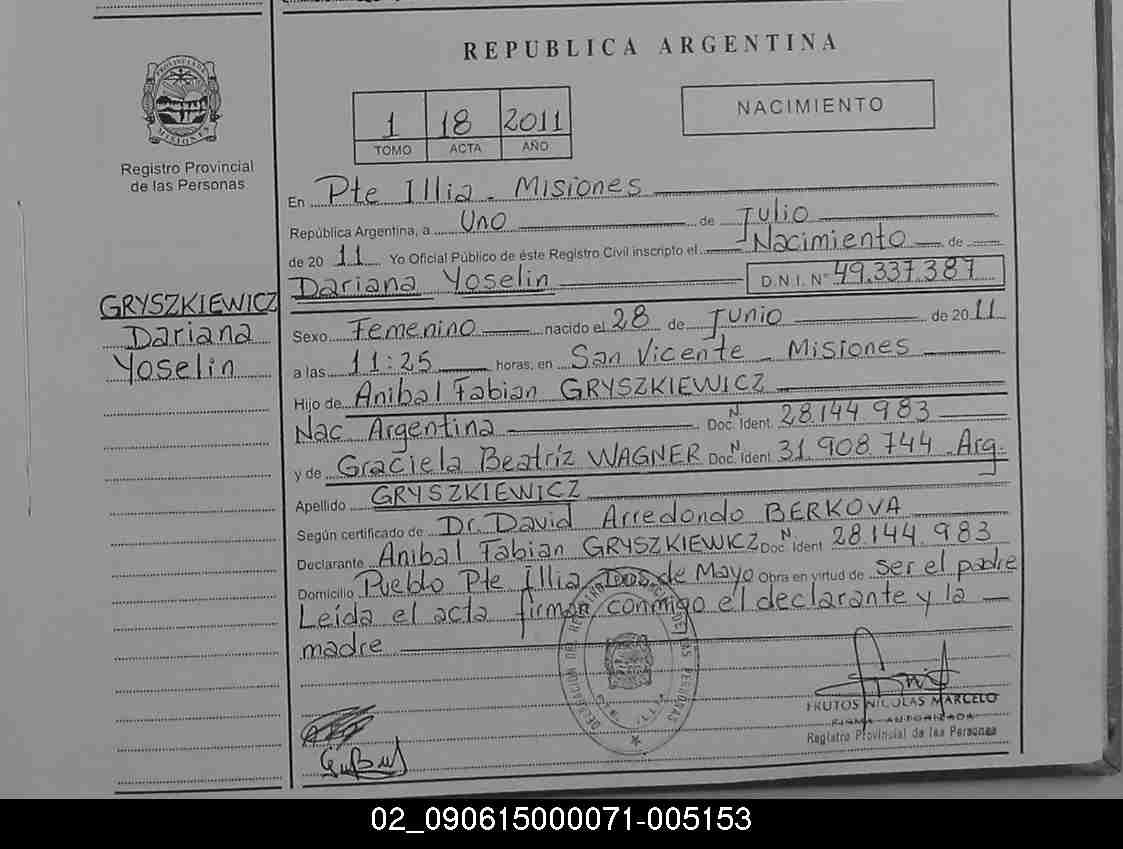 REPUBLICA ARGENTINA
PROVINCIA DE MISIONES
Registro Provincial
de las Personas
1 18 2011
TOMO ACTA AÑO
NACIMIENTO
En Pte Illia - Misiones
República Argentina, a Uno de Julio
de 2011 Yo Oficial Público de éste Registro Civil inscripto el Nacimiento de
Dariana Yoselin D.N.I. Nº 49.337.387
GRYSZKIEWICZ
Dariana
Yoselin
Sexo Femenino nacido el 28 de Junio de 2011
a las 11:25 horas, en San Vicente - Misiones
Hijo de Anibal Fabian GRYSZKIEWICZ
Nac Argentina Doc. Ident. N 28.144.983
y de Graciela Beatriz WAGNER Doc. Ident N 31.908.744 Arg.
Apellido GRYSZKIEWICZ
Según certificado de Dr. David Arredondo BERKOVA
Declarante Anibal Fabian GRYSZKIEWICZ Doc. Ident N 28.144.983
Domicilio Pueblo Pte Illia Dos de Mayo Obra en virtud de ser el padre
Leída el acta firman conmigo el declarante y la
madre
FRUTOS NICOLAS MARCELO
FIRMA AUTORIZADA
Registro Provincial de las Personas
02_090615000071-005153